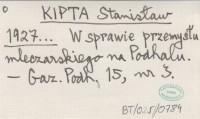 o
KIPTA Stanisław
1927... W sprawie przemysłu
mleczarskiego na Podhalu.
– Gaz. Podh., 15, nr 3.
BT/0.5/0784